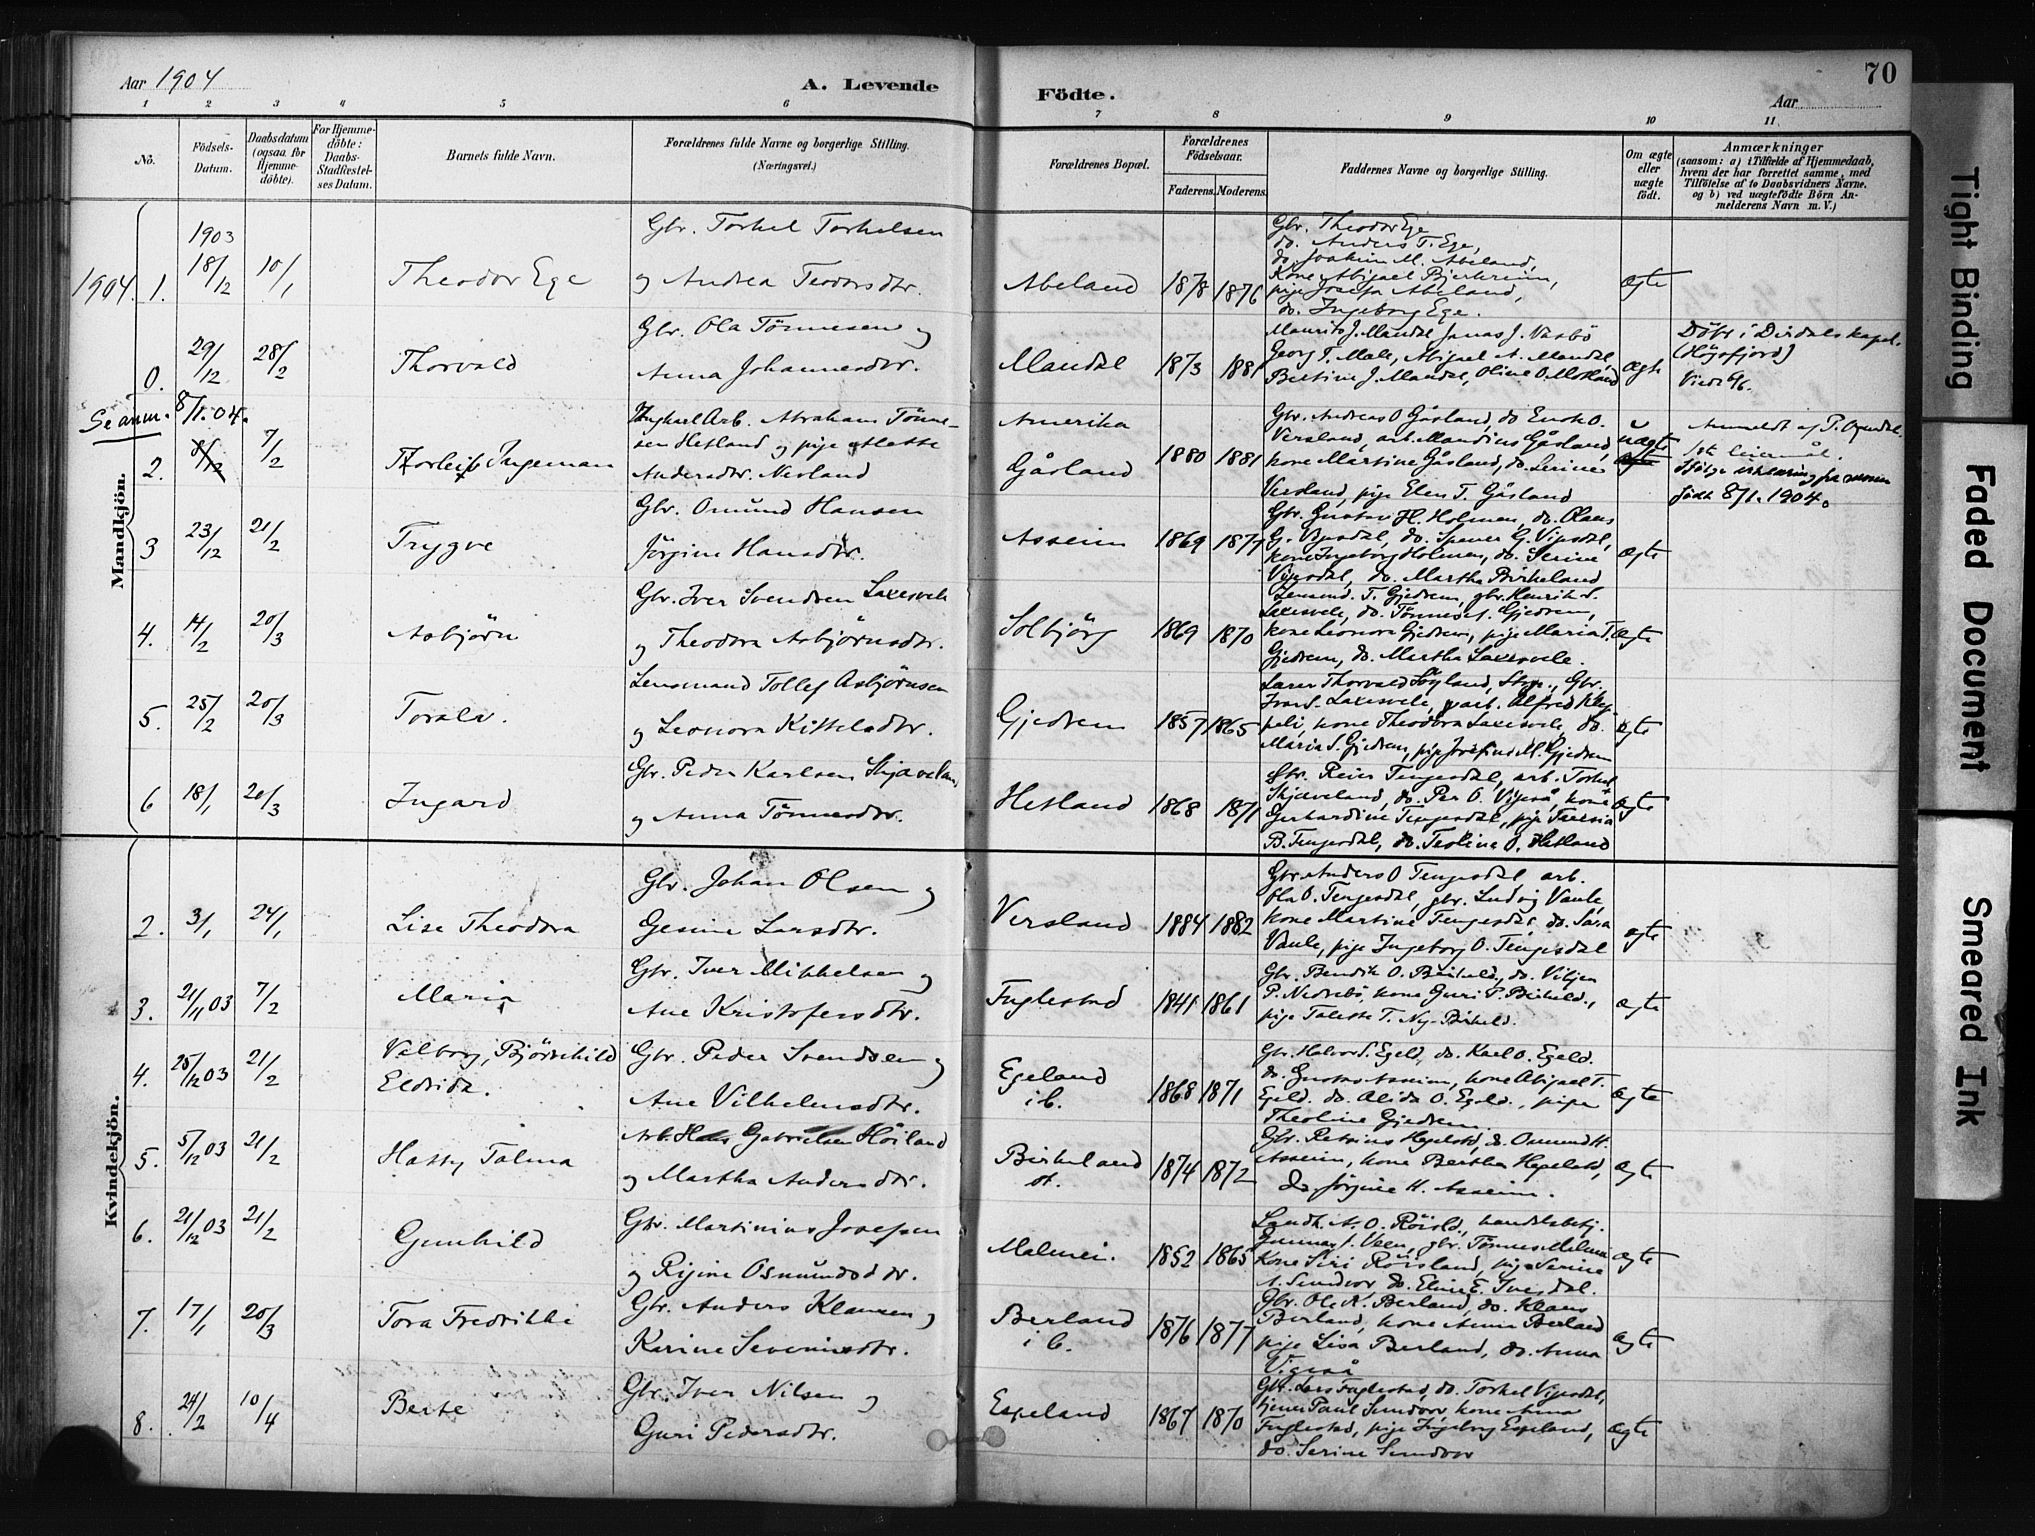 Aar 1904
A. Levende
Födte.
Aar
70
1 2 3 4 5 6 7 8 9 10 11
No.
Födsels-Datum.
Daabsdatum (ogsaa for Hjemme-döbte).
For Hjemme-döbte: Daabs-Stadfæstel-ses Datum.
Barnets fulde Navn.
Forældrenes fulde Navne og borgerlige Stilling.
(Næringsvei.)
Forældrenes Bopæl.
Forældrenes Födselsaar.
Faderens. Moderens.
Faddernes Navne og borgerlige Stilling.
Om ægte eller uægte födt.
Anmærkninger
(saasom: a) i Tilfælde af Hjemmedaab,
hvem der har forrettet samme, med
Tilföielse af to Daabsvidners Navne,
og b) ved uægtefödte Börn An-
melderens Navn m. V.)
Mandkjön.
1904. 1. 1903 18/12 10/1 Theodor Ege
Gbr. Torkel Torkelsen
og Andrea Teodorsdtr.
Abeland 1878 1876
Gbr. Theodor Ege
do. Anders T. Ege,
do. Joakim M. Abeland,
Kone Abigael Bjerkreim,
pige Josefa Abeland,
do. Ingeborg Ege.
ægte
0. 29/12 28/2 Thorvald
Gbr. Ola Tönnesen og
Anna Johannesdtr.
Mandal 1873 1881
Maurits J. Mandal Jonas J. Vasbö
Georg T. Male, Abigael A. Mandal,
Bertine J. Mandal, Oline O. Motland
ægte
Döbt i Dirdals kapel.
(Högsfjord)
Se anm. 8/1. 04.
2. 7/2 Thorleif Ingeman
Abraham Tönne-
sen Hetland og pige
Andersdtr. Nesland
Amerika
Gåsland 1880 1881
Gbr. Andreas O Gåsland, do Enok O.
Versland, arb. Mandius Gåsland,
kone Martine Gåsland, do. Serine
Versland, pige Elen T. Gåsland
uægte
Anmeldt af T. Ognedal.
1st. leiermål.
Ifölge erklæring fra moren
födt 8/1. 1904.
3 23/12 21/2 Trygve
Gbr. Omund Hansen
Jörgine Hansdtr.
Asseim 1869 1877
Gbr. Gustav H. Holmen, do. Olaus
G. Vipsdal, do. Spener G. Vipsdal,
kone Ingeborg Holmen, do. Serine
Vipsdal, do. Martha Birkeland
ægte
4. 14/2 20/3 Asbjörn
Gbr. Iver Svendsen Laxesvele
og Theodora Asbjörnsdtr.
Solbjörg 1869 1870
Lensmd. T. Gjedrem, gbr. Henrik S.
Laxesvele, do. Tönnes A. Gjedrem,
kone Leonora Gjedrem, pige Maria T.
Gjedrem, do. Martha Laxesvele.
ægte
5. 25/2 20/3 Toralv.
Lensmand Tollef Asbjörnsen
og Leonora Kittelsdtr.
Gjedrem 1857 1865
Lærer Thorvald Söyland, Gbr.
Iver S. Laxesvele, arb. Alfred Klep-
peli, kone Theodora Laxesvele, do.
Maria S. Gjedrem, pige Josefine M. Gjedrem
ægte
6 18/1 20/3 Ingard
Gbr. Peder Karlsen Skjæveland
og Anna Tönnesdtr.
Hetland 1868 1871
Gbr. Reier Tengesdal, arb. Torkel
Skjæveland, do. Per O. Vigeså, kone
Gerhardine Tengesdal, pige Taresia
B. Tengesdal, do. Teoline O. Hetland
ægte
Kvindekjön.
2. 3/1 24/1 Lise Theodora
Gbr. Johan Olsen og
Gesine Larsdtr.
Versland 1884 1882
Gbr. Anders O Tengesdal arb.
Ola O. Tengesdal, gbr. Ludvig Vaule,
kone Martine Tengesdal, do. Sara
Vaule, pige Ingeborg O. Tengesdal
ægte
3. 21/11 03 7/2 Maria
Gbr. Iver Mikkelsen og
Ane Kristofersdtr.
Fuglestad 1841 1861
Gbr. Bendik O. Birkeld, do. Viljen
P. Nedrebö, kone Guri P. Birkeld.,
pige Talette T. Ny-Birkeld.
ægte
4. 25/12 03 21/2 Valborg, Björnhild
Eldrida.
Gbr. Peder Svendsen og
Ane Vilhelmsdtr.
Egeland
i b. 1868 1871
Gbr. Halvor S. Egeld, do. Karl O. Egeld.
do. Gustav Asseim, kone Abigael T.
Egeld. do. Alida O. Egeld., pige
Theoline Gjedrem.
ægte
5. 5/12 03 21/2 Hatty Talma
Arb. Hans Gabrielsen Höiland
og Martha Andersdtr.
Birkeland
st. 1874 1872
Gbr. Petrius Hegelstd, do. Omund H.
Asseim, kone Bertha Hegelstd,
do. Jörgine H. Asseim.
ægte
6. 21/12 03 21/2 Gunhild
Gbr. Martinius Josefsen
og Rigine Osmundsdtr.
Malmein. 1852 1865
Landh. A. O. Röisld., handelsbetj.
Gunnar S. Veen, gbr. Tönnes Melmei
Kone Siri Röisland, pige Serine
A. Sundvor do. Eline E. Ivesdal.
ægte
7. 17/1 20/3 Tora Fredrikke
Gbr. Anders Klausen og
Karine Severinsdtr.
Berland
i b. 1876 1877
Gbr. Ole K. Berland, do. Klaus
Berland, kone Anna Berland
pige Lisa Berland, do. Anna
Vigeså
ægte
8. 24/2 10/4 Berte
Gbr. Iver Nilsen og
Guri Pedersdtr.
Espeland 1867 1870
Gbr. Lars Fuglestad, do. Torkel Vipsdal,
tjener Paul Sundvor kone Anna
Fuglestad, pige Ingeborg Espeland,
do. Serine Sundvor
ægte
Tight Binding
Faded Document
Smeared Ink